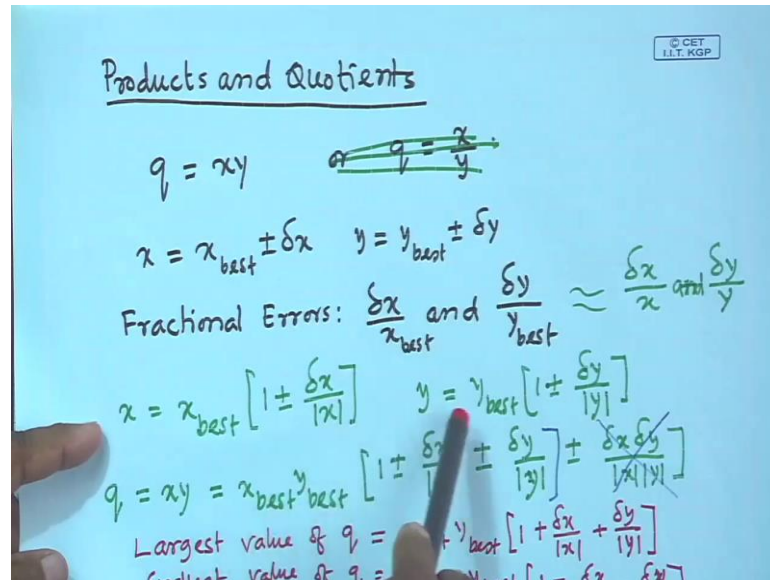 © CET
I.I.T. KGP
Products and Quotients
q = xy or q = x/y
x = x_best ± δx y = y_best ± δy
Fractional Errors: δx/x_best and δy/y_best ≈ δx/x and δy/y
x = x_best [1 ± δx/|x|] y = y_best [1 ± δy/|y|]
q = xy = x_best y_best [1 ± ± δy/|y|] ± δx δy/|x||y|]
Largest value of q = y_best [1 + δx/|x| + δy/|y|]
value of q =